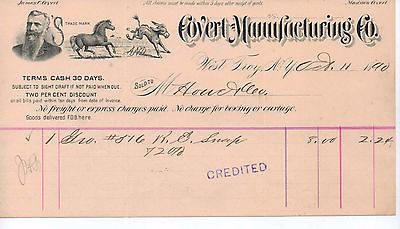 James E. Covert
All claims must be made within 5 days after receipt of goods.
Madison Covert
TRADE MARK
AND
Covert Manufacturing Co.
West Troy, N.Y. Oct. 11 1890
TERMS CASH 30 DAYS.
SUBJECT TO SIGHT DRAFT IF NOT PAID WHEN DUE.
TWO PER CENT DISCOUNT
on all bills paid within ten days from date of invoice.
Sold to
M. Howe
No freight or express charges paid. No charge for boxing or cartage.
Goods delivered F.O.B. here.
1 Gro. #516 Snap 8.00 2.24
CREDITED